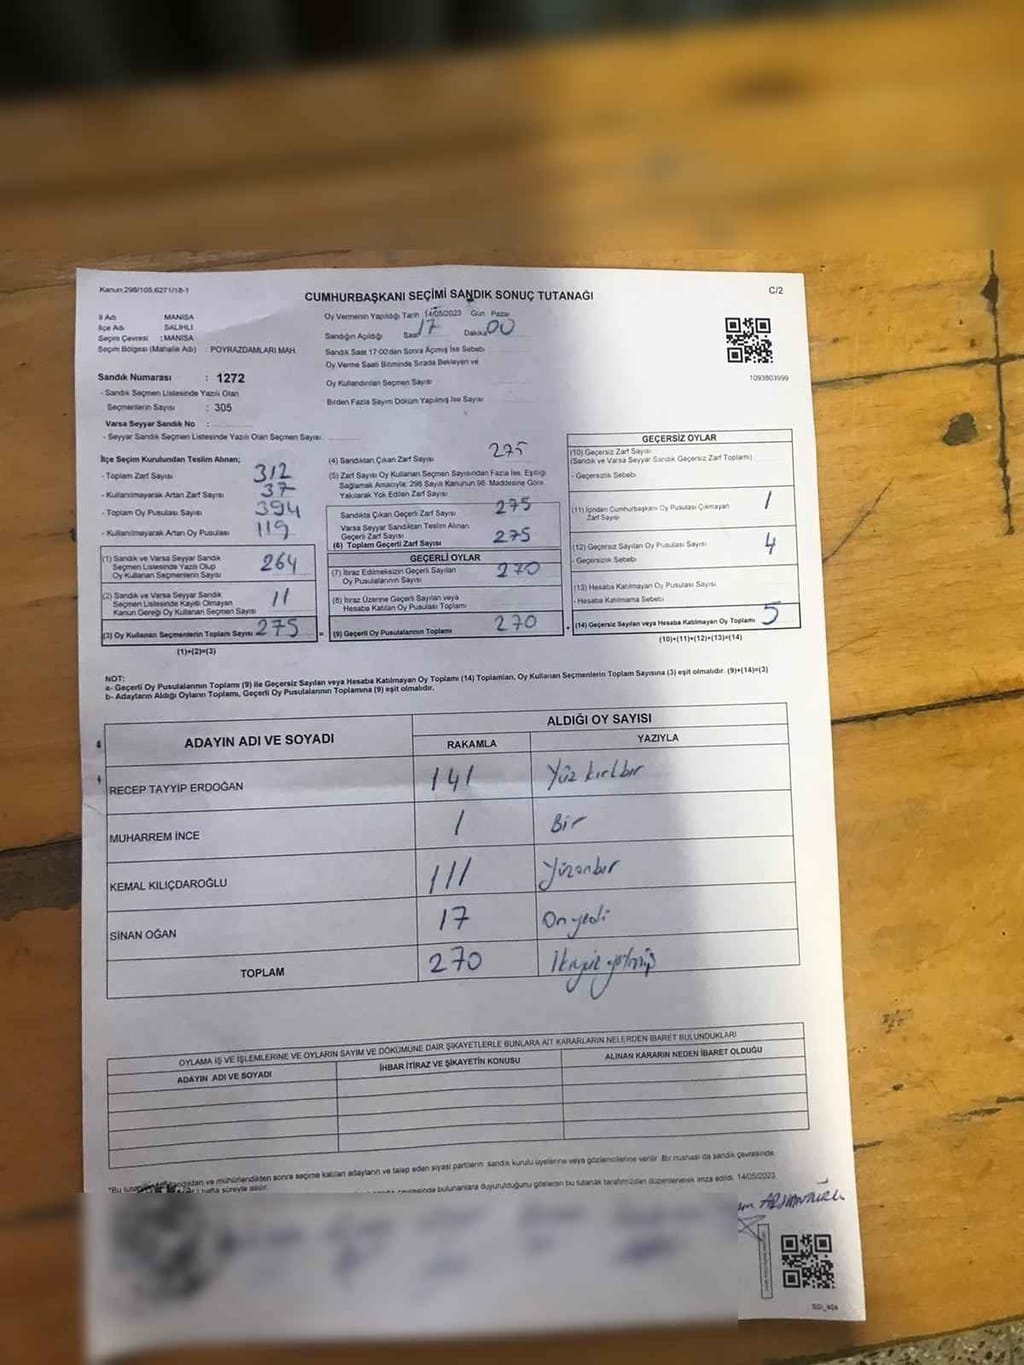 Kanun:298/105,6271/18-1
CUMHURBAŞKANI SEÇİMİ SANDIK SONUÇ TUTANAĞI
C/2
İl Adı : MANİSA
İlçe Adı : SALİHLİ
Seçim Çevresi : MANİSA
Seçim Bölgesi (Mahalle Adı) : POYRAZDAMLARI MAH.
Oy Vermenin Yapıldığı Tarih 14/05/2023 Gün Pazar
Sandığın Açıldığı Saat 17 Dakika 00
Sandık Saat 17:00'den Sonra Açılmış İse Sebebi
Oy Verme Saati Bitiminde Sırada Bekleyen ve
Oy Kullandırılan Seçmen Sayısı
Birden Fazla Sayım Döküm Yapılmış İse Sayısı
1093803999
Sandık Numarası : 1272
- Sandık Seçmen Listesinde Yazılı Olan
Seçmenlerin Sayısı : 305
Varsa Seyyar Sandık No :
- Seyyar Sandık Seçmen Listesinde Yazılı Olan Seçmen Sayısı:
İlçe Seçim Kurulundan Teslim Alınan;
- Toplam Zarf Sayısı 312
- Kullanılmayarak Artan Zarf Sayısı 37
- Toplam Oy Pusulası Sayısı 394
- Kullanılmayarak Artan Oy Pusulası 119
(1) Sandık ve Varsa Seyyar Sandık
Seçmen Listesinde Yazılı Olup
Oy Kullanan Seçmenlerin Sayısı 264
(2) Sandık ve Varsa Seyyar Sandık
Seçmen Listesinde Kayıtlı Olmayan
Kanun Gereği Oy Kullanan Seçmen Sayısı 11
(3) Oy Kullanan Seçmenlerin Toplam Sayısı 275
(1)+(2)=(3)
(4) Sandıktan Çıkan Zarf Sayısı 275
(5) Zarf Sayısı Oy Kullanan Seçmen Sayısından Fazla İse, Eşitliği
Sağlamak Amacıyla; 298 Sayılı Kanunun 98. Maddesine Göre
Yakılarak Yok Edilen Zarf Sayısı
Sandıkta Çıkan Geçerli Zarf Sayısı 275
Varsa Seyyar Sandıktan Teslim Alınan
Geçerli Zarf Sayısı
(6) Toplam Geçerli Zarf Sayısı 275
GEÇERLİ OYLAR
(7) İtiraz Edilmeksizin Geçerli Sayılan
Oy Pusulalarının Sayısı 270
(8) İtiraz Üzerine Geçerli Sayılan veya
Hesaba Katılan Oy Pusulası Toplamı
(9) Geçerli Oy Pusulalarının Toplamı 270
GEÇERSİZ OYLAR
(10) Geçersiz Zarf Sayısı
(Sandık ve Varsa Seyyar Sandık Geçersiz Zarf Toplamı)
- Geçersizlik Sebebi
(11) İçinden Cumhurbaşkanı Oy Pusulası Çıkmayan
Zarf Sayısı 1
(12) Geçersiz Sayılan Oy Pusulası Sayısı 4
- Geçersizlik Sebebi
(13) Hesaba Katılmayan Oy Pusulası Sayısı
- Hesaba Katılmama Sebebi
(14) Geçersiz Sayılan veya Hesaba Katılmayan Oy Toplamı 5
(10)+(11)+(12)+(13)=(14)
NOT:
a- Geçerli Oy Pusulalarının Toplamı (9) ile Geçersiz Sayılan veya Hesaba Katılmayan Oy Toplamı (14) Toplamları, Oy Kullanan Seçmenlerin Toplam Sayısına (3) eşit olmalıdır. (9)+(14)=(3)
b- Adayların Aldığı Oyların Toplamı, Geçerli Oy Pusulalarının Toplamına (9) eşit olmalıdır.
ADAYIN ADI VE SOYADI
ALDIĞI OY SAYISI
RAKAMLA
YAZIYLA
RECEP TAYYİP ERDOĞAN 141 Yüz kırkbir
MUHARREM İNCE 1 Bir
KEMAL KILIÇDAROĞLU 111 Yüzonbir
SİNAN OĞAN 17 Onyedi
TOPLAM 270 İkiyüz yetmiş
OYLAMA İŞ VE İŞLEMLERİNE VE OYLARIN SAYIM VE DÖKÜMÜNE DAİR ŞİKAYETLERLE BUNLARA AİT KARARLARIN NELERDEN İBARET BULUNDUKLARI
ADAYIN ADI VE SOYADI
İHBAR İTİRAZ VE ŞİKAYETİN KONUSU
ALINAN KARARIN NEDEN İBARET OLDUĞU
mühürlendikten sonra seçime katılan adayların ve talep eden siyasi partilerin sandık kurulu üyelerine veya gözlemcilerine verilir. Bir nüshası da sandık çevresinde
hafta süreyle asılır.
çevresinde bulunanlara duyurulduğunu gösteren bu tutanak tarafımızdan düzenlenerek imza edildi. 14/05/2023